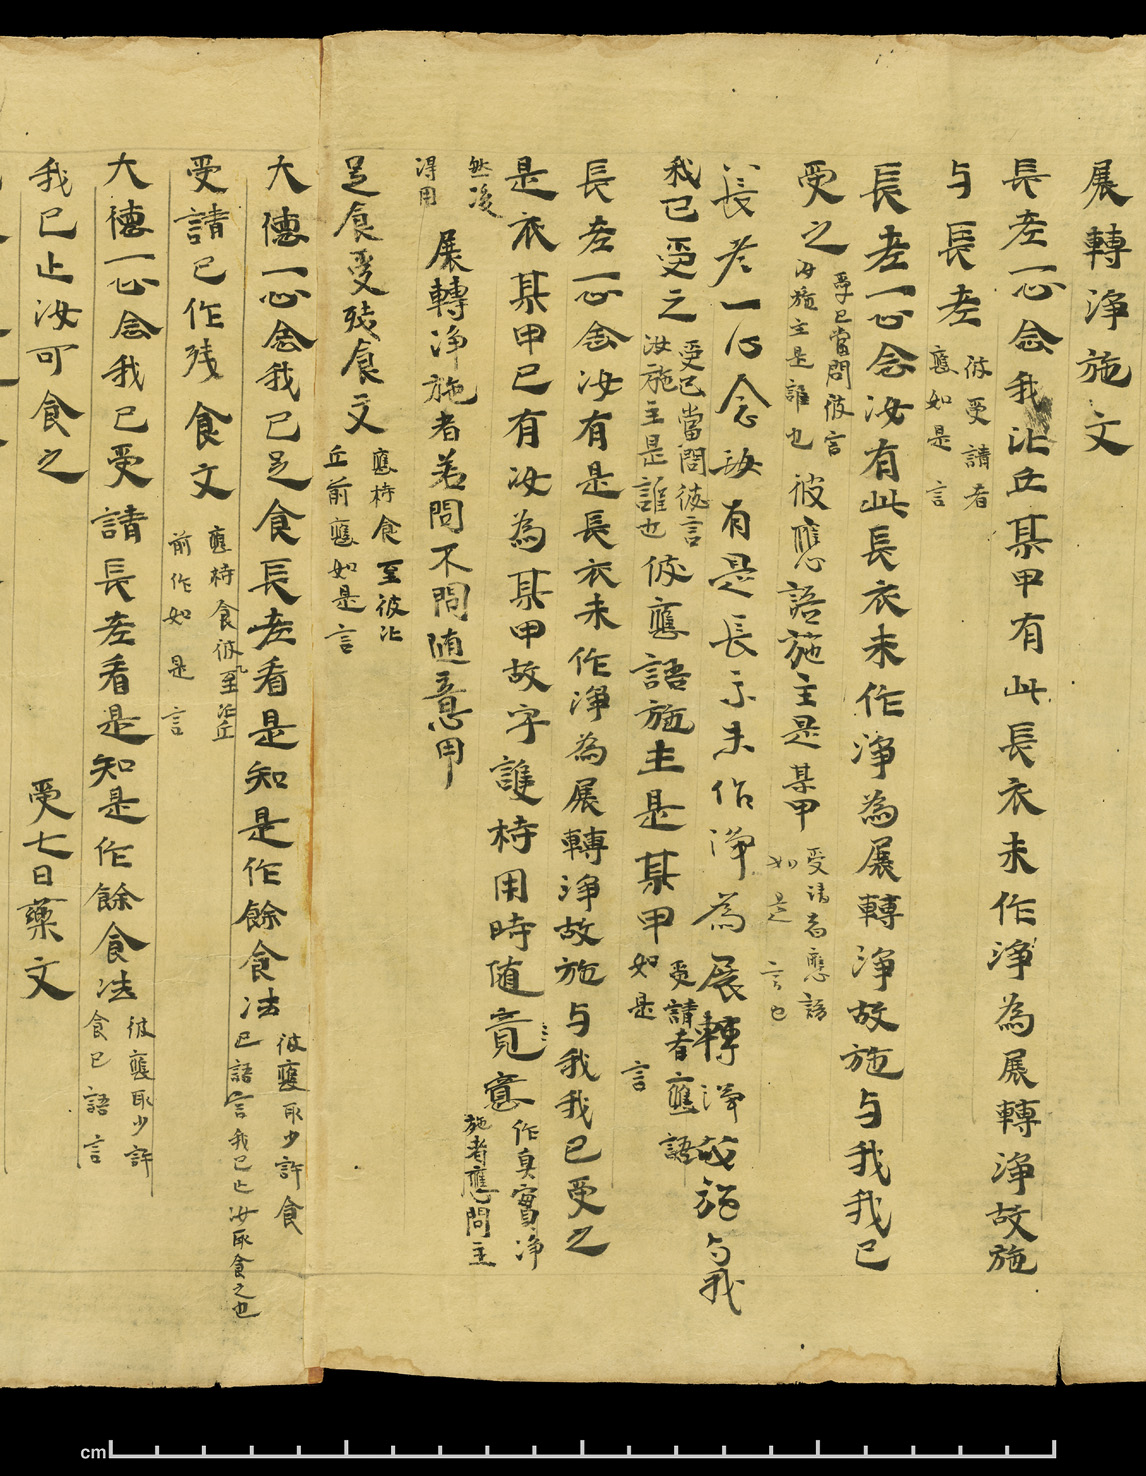 展轉淨施文
長老一心念我比丘某甲有此長衣未作淨為展轉淨故施
与長老彼受請者應如是言
長老一心念汝有此長衣未作淨為展轉淨故施与我我已
受之受已當問彼言汝施主是誰也彼應語施主是某甲受請者應語如是言也
長老一心念汝有是長衣未作淨為展轉淨故施与我
我已受之受已當問彼言汝施主是誰也彼應語施主是某甲受請者應語如是言
長老一心念汝有是長衣未作淨為展轉淨故施与我我已受之
是衣某甲已有汝為某甲故守護持用時随竟意作真實淨施者應問主
然後得用展轉淨施者若問不問随意用
足食受残食文應持食至彼比丘前應如是言
大德一心念我已足食長老看是知是作餘食法彼應取少許食已語言我已止汝取食之也
受請已作残食文應持食彼至比丘前作如是言
大德一心念我已受請長老看是知是作餘食法彼應取少許食已語言
我已止汝可食之受七日藥文